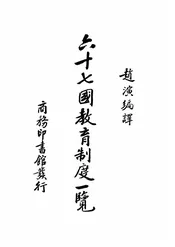 趙演編譯
六十七國教育制度一覽
商務印書館發行